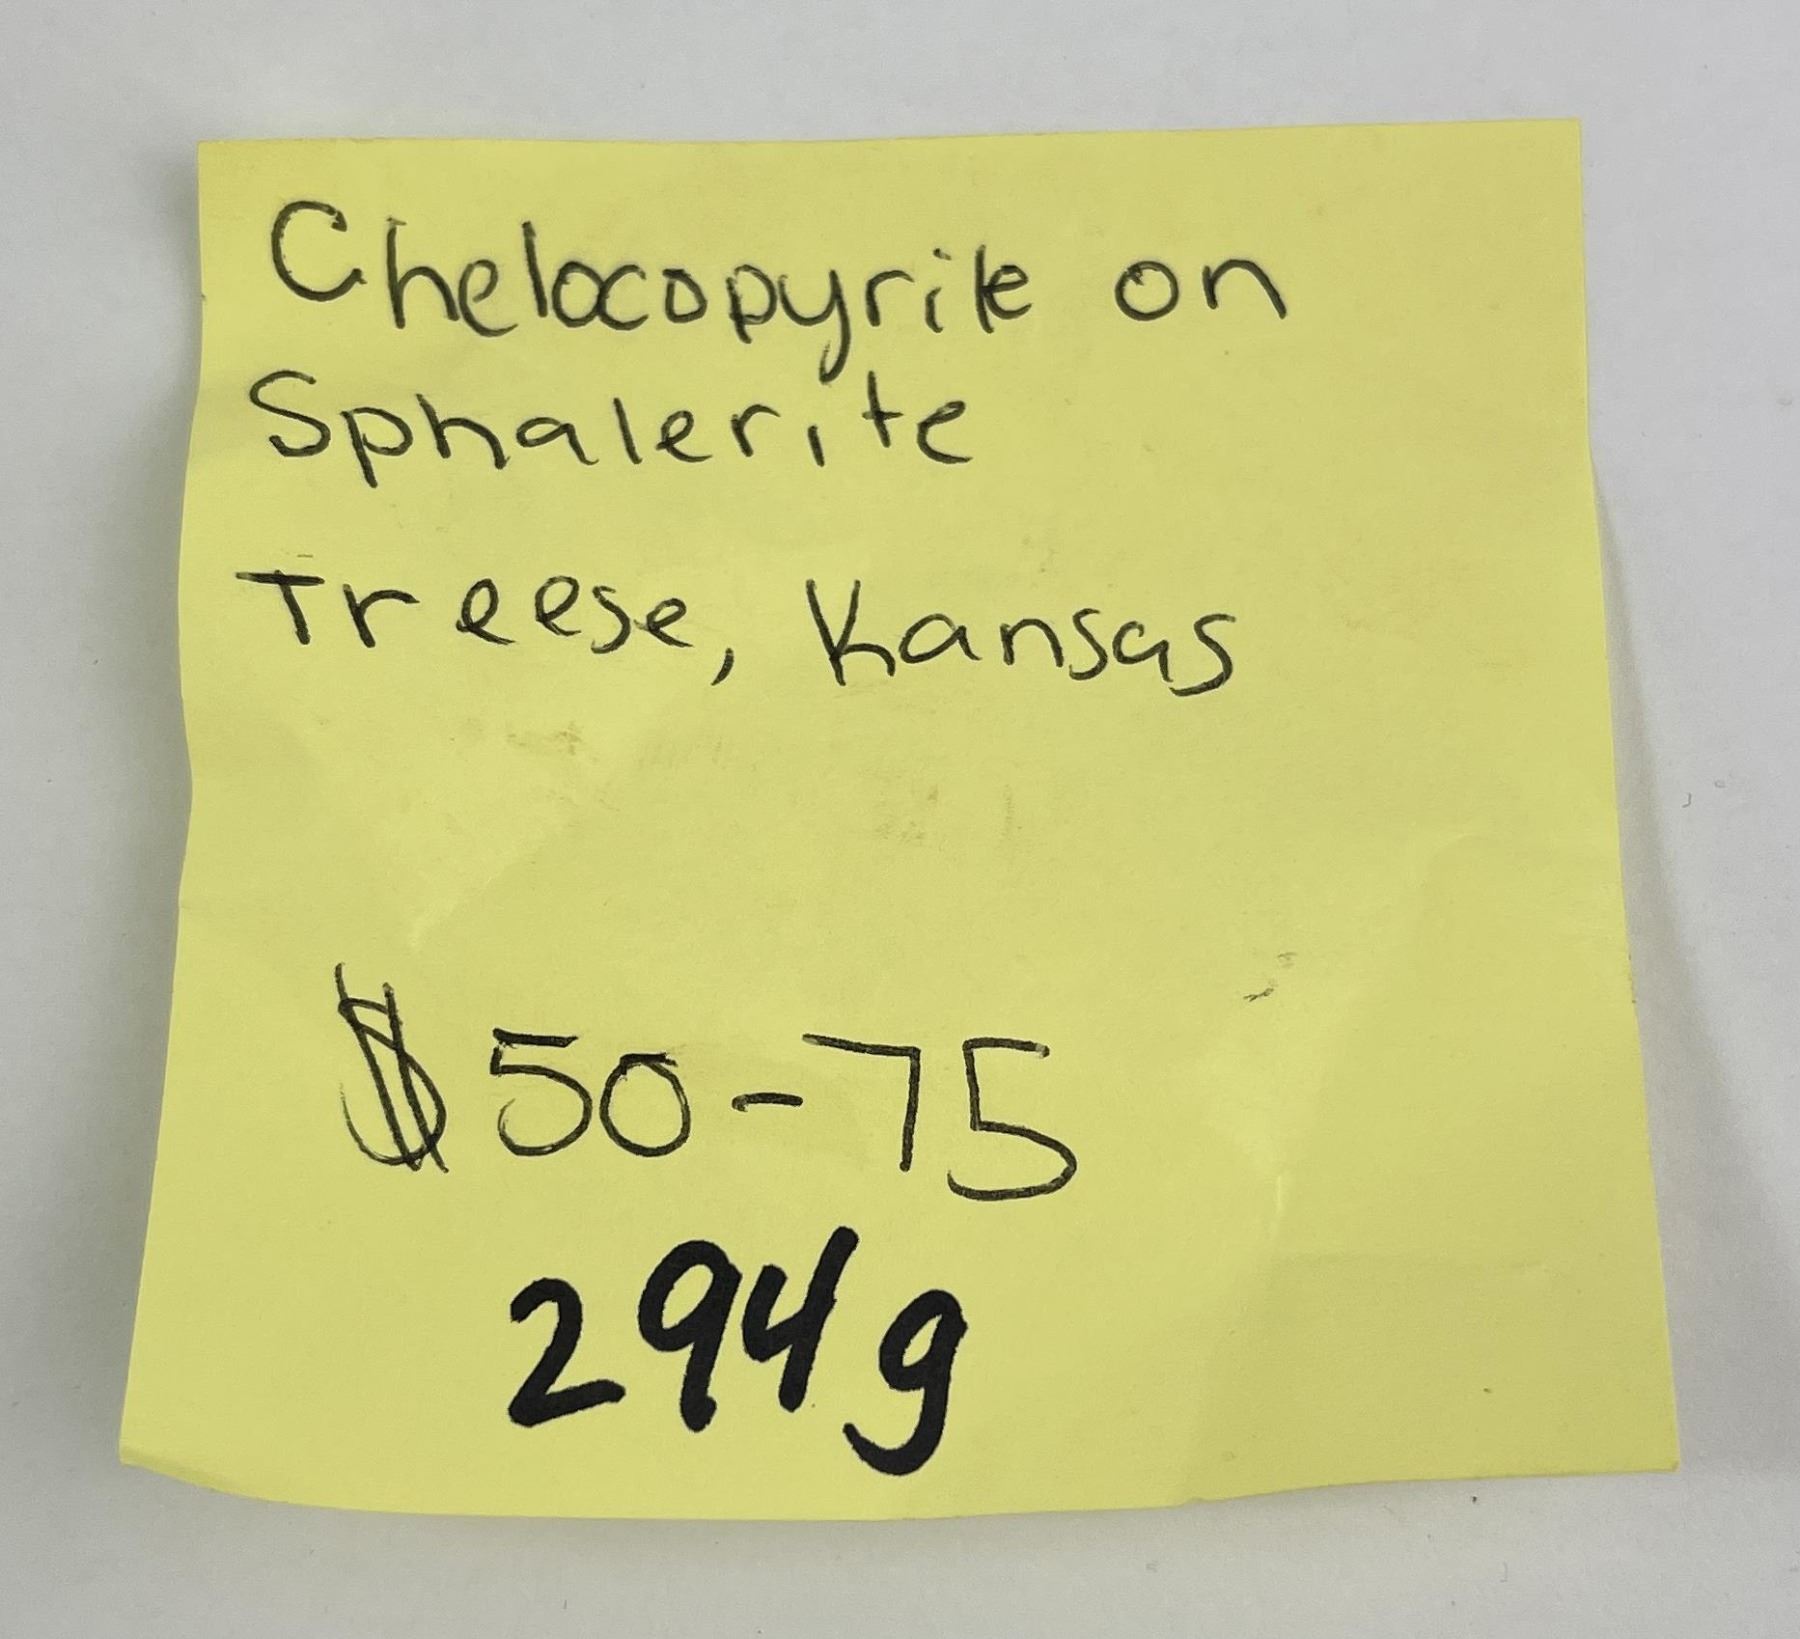 Chelocopyrite on
Sphalerite
Treese, Kansas
$50-75
294g